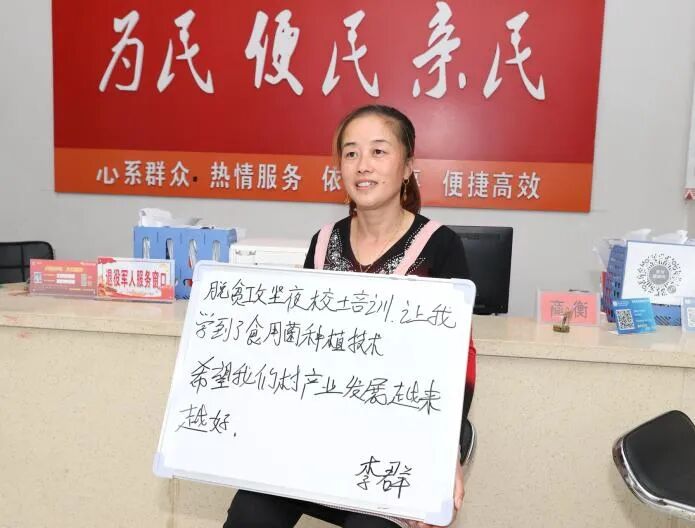 为民 便民 亲民
心系群众 热情服务 依 便捷高效
退役军人服务窗口
商 衡
脱贫攻坚夜校培训.让我
学到了食用菌种植技术
希望我们村产业发展越来
越好.
李群